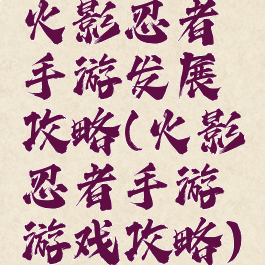 火影忍者
手游发展
攻略(火影
忍者手游
游戏攻略)